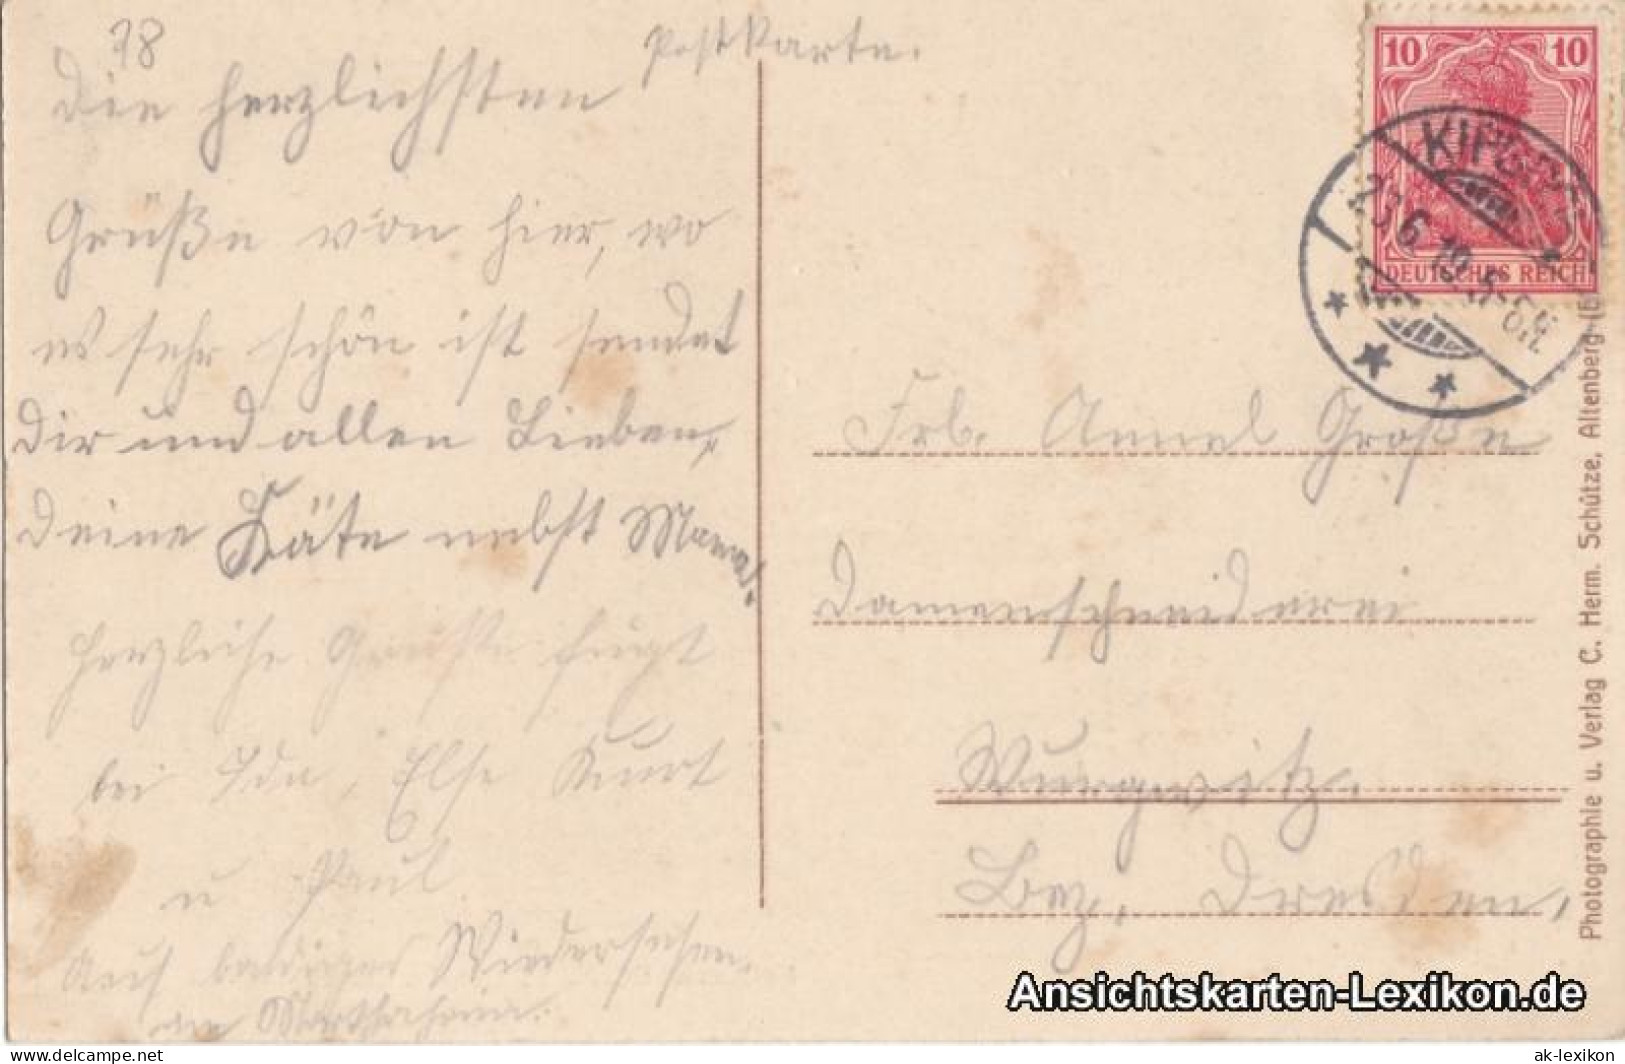 78
Postkarte.
Die herzlichsten
Grüße von hier, wo
es sehr schön ist sendet
Dir und allen Lieben,
Deine Käte nebst Mama.
Herzliche Grüße fügt
bei Ida, Else Kurt
u Paul.
Auf baldiges Wiedersehen.
im
10 10
DEUTSCHES REICH
23.6.19
Frl. Annel Große
Damenschneiderei
Wurgwitz.
Bez. Dresden,
Photographie u. Verlag C. Herm. Schütze, Altenberg
Ansichtskarten-Lexikon.de
https://www.delcampe.net
ak-lexikon